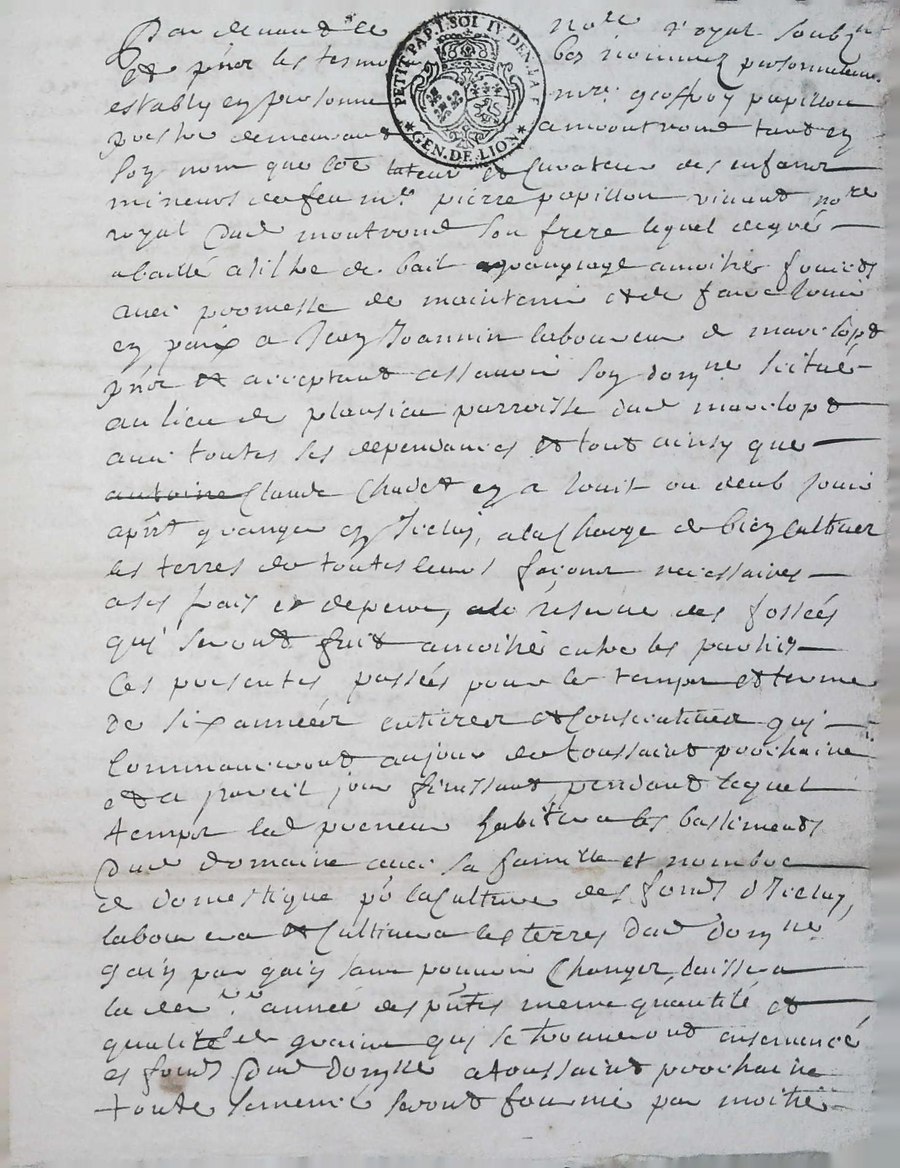 Par devant le no.re Royal soubz.né
et présa les tesmo bas nommez personnellem.
estably en personne m.re geoffroy papillon
demeurant amontrond tant en
son nom que côe tuteur et Curateur des enfans
mineurs de feu m.re pierre papillon vivant no.re
royal dud montrond son frere lequel degré
abaillé atiltre de bail grangeage amoitié fruicts
avec promesse de maintenir et de faire Jouir
en paix a Jean Joannin laboureur de marclopt
pñt et acceptant assavoir son dom.ne scitué
au lieu de plansieu parroisse dud marclopt
avec toutes ses dependances et tout ainsy que
antoine Claude Chavet en a Jouit ou deub Jouir
granger en Jceluy, ala Charge de bien Cultiver
les terres de toutes leurs façons necessaires
ases frais et depens, ala reserve des fossés
qui seront fait amoitié entre les parties
Ces presentes passées pour le temps et terme
de six années entieres et Consecutives qui
Commanceront aujour de toussaint prochaine
et a pareil jour finissant, pendant lequel
temps led preneur habitera les bastiments
dud domaine avec sa famille et nombre
de domestique pr la Culture des fonds d'Jceluy,
labourera et Cultivera les terres dud dom.ne
gain par gain sans pouvoir Changer, laissera
la der.re année des pñtes meme quantité et
qualité de graine qui se trouveront ensemencé
es fonds dud dom.ne atoussaint prochaine
toute semence seront fournie par moitié
PETIT PAP. 1. SOL IV. DEN. LA F.
GEN. DE LION